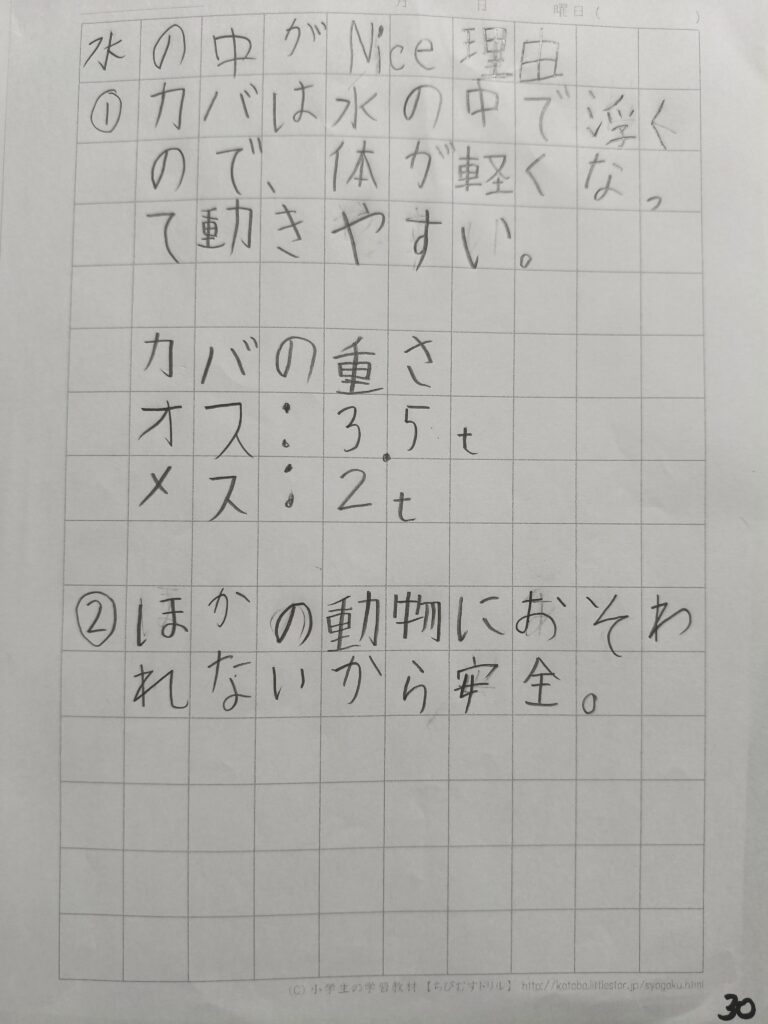 月 日 曜日( )
水の中がNice理由
①カバは水の中で浮く
ので、体が軽くなっ
て動きやすい。
カバの重さ
オス:3.5t
メス:2t
②ほかの動物におそわ
れないから安全。
(C)小学生の学習教材【ちびむすドリル】 http://kotoba.littlestar.jp/syogaku.html
30